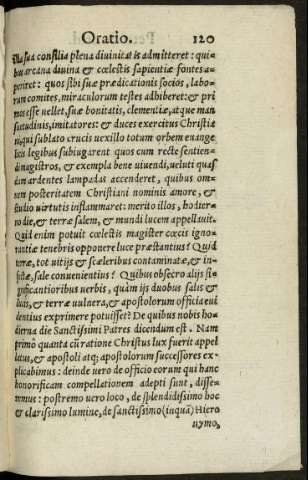 Oratio. 120
sua consilia plena diuinitatis admitteret: qui-
bus arcana diuina & cœlestis sapientiæ fontes a-
periret: quos sibi suæ prædicationis socios, labo-
rum comites, miraculorum testes adhiberet: & pri
mos esse uellet, suæ bonitatis, clementiæ, atque man
suetudinis, imitatores: & duces exercitus Christia
ni, qui sublato crucis uexillo totum orbem euange
licis legibus subiugarent quos cum recte sentien-
di magistros, & exempla bene uiuendi, ueluti quas
dam ardentes lampadas accenderet, quibus om-
nem posteritatem Christiani nominis amore, &
studio uirtutis inflammaret: merito illos, hodier-
no die, & terræ salem, & mundi lucem appellauit.
Quid enim potuit cœlestis magister cœcis igno-
rantiæ tenebris opponere luce præstantius? Quid
terræ, tot uitijs & sceleribus contaminatæ, & in-
fectæ, sale conuenientius? Quibus obsecro alijs si-
gnificantioribus uerbis, quàm ijs duobus salis &
lucis, & terræ uulnera, & apostolorum officia eui
dentius exprimere potuisset? De quibus nobis ho-
dierna die Sanctissimi Patres dicendum est. Nam
primò quanta cũ ratione Christus lux fuerit appel
latus, & apostoli atq; apostolorum successores ex-
plicabimus: deinde uero de officio eorum qui hanc
honorificam compellationem adepti sunt, disse-
remus: postremo uero loco, de splendidissimo hoc
& clarissimo lumine, de sanctissimo (inquã) Hiero
nymo,